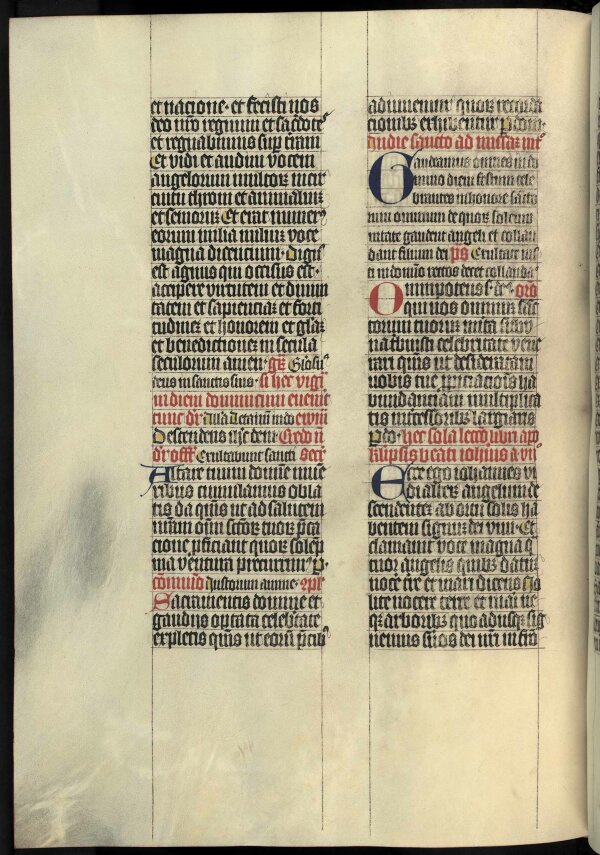 et nacione · et fecisti nos
deo nr̄o regnum et sac̄dote
et regnabimus sup̄ t̄ram
Et vidi et audiui vocem
angelorum multoꝝ in cir
cuitu throni et animaliuꝫ
et senioruꝫ Et erat numer⁹
eorum milia miliuꝫ voce
magna dicentium · Dign⁹
est agnus qui occisus est ·
accipere virtutem et diuini
tatem et sapienciaꝫ et forti
tudineꝫ et honorem et gl̄aꝫ
et benedictioneꝫ in secula
seculorum amen · gr̄ Glosu⁹
deus in sanctis suis · si hec vigil̄
in diem dominicum euen̄it
tunc dr̄ Alla ewm̄
Descendens ih̄c de m̄ Credo n̄
dr̄ off̄ Exultabunt sancti secr̄
Altare tuum domine mune
ribus cumulamus obla
tis da q̄s ut ad salutem
nr̄am om̄ sc̄torꝫ tuorꝫ p̄ca
cione p̄ficiant quoꝝ solēp
nia ventura precurrim⁹ p̄
comuio Iustorum anime · cpl̄
Sacramentis domine et
gaudijs optata celebrītate
expletis q̄s ut eorū p̄cib⁹
adiuuemur quoꝝ recorda
cionibꝫ exhibentur p̄
In die sancto ad missaꝫ int̄
Gaudeamus omnes in do
mino diem festum cele
brantes in honore sancto
rum omnium de quoꝝ solemp
nitate gaudent angeli et collau
dant filium dei ps̄ Exultate ius
ti in domīo rectos decet collauda⁹
Omnipotens s̄ d̄s or̄o
qui nos omnium sanc
torum tuorum mīta sub vna
tribuisti celebritate vene
rari q̄s ut desideratam
nobis tue p̄piciacōis ha
bundanciam multiplica
tis intercessoribꝫ largiaris
P̄ · hec sola lecc̄o libri apo
kalip̄sis beati ioh̄nis a· vii
Ecce ego iohannes vi
di alterꝫ angelum de
scendenteꝫ ab ortu solis ha
bentem signuꝫ dei viui · Et
clamauit voce magna q̄
tuor angelis quibꝫ datuꝫ
nocere t̄re et mari dicens No
lite nocere terre et mari ne
qꝫ arboribꝫ quo adusqꝫ sig
nemus s̄uos dei nr̄i in fro